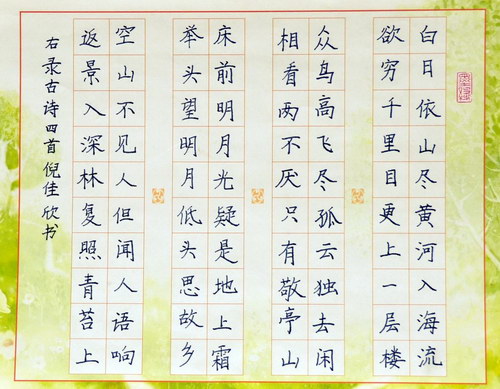 白日依山尽黄河入海流
欲穷千里目更上一层楼
众鸟高飞尽孤云独去闲
相看两不厌只有敬亭山
床前明月光疑是地上霜
举头望明月低头思故乡
空山不见人但闻人语响
返景入深林复照青苔上
右录古诗四首倪佳欣书